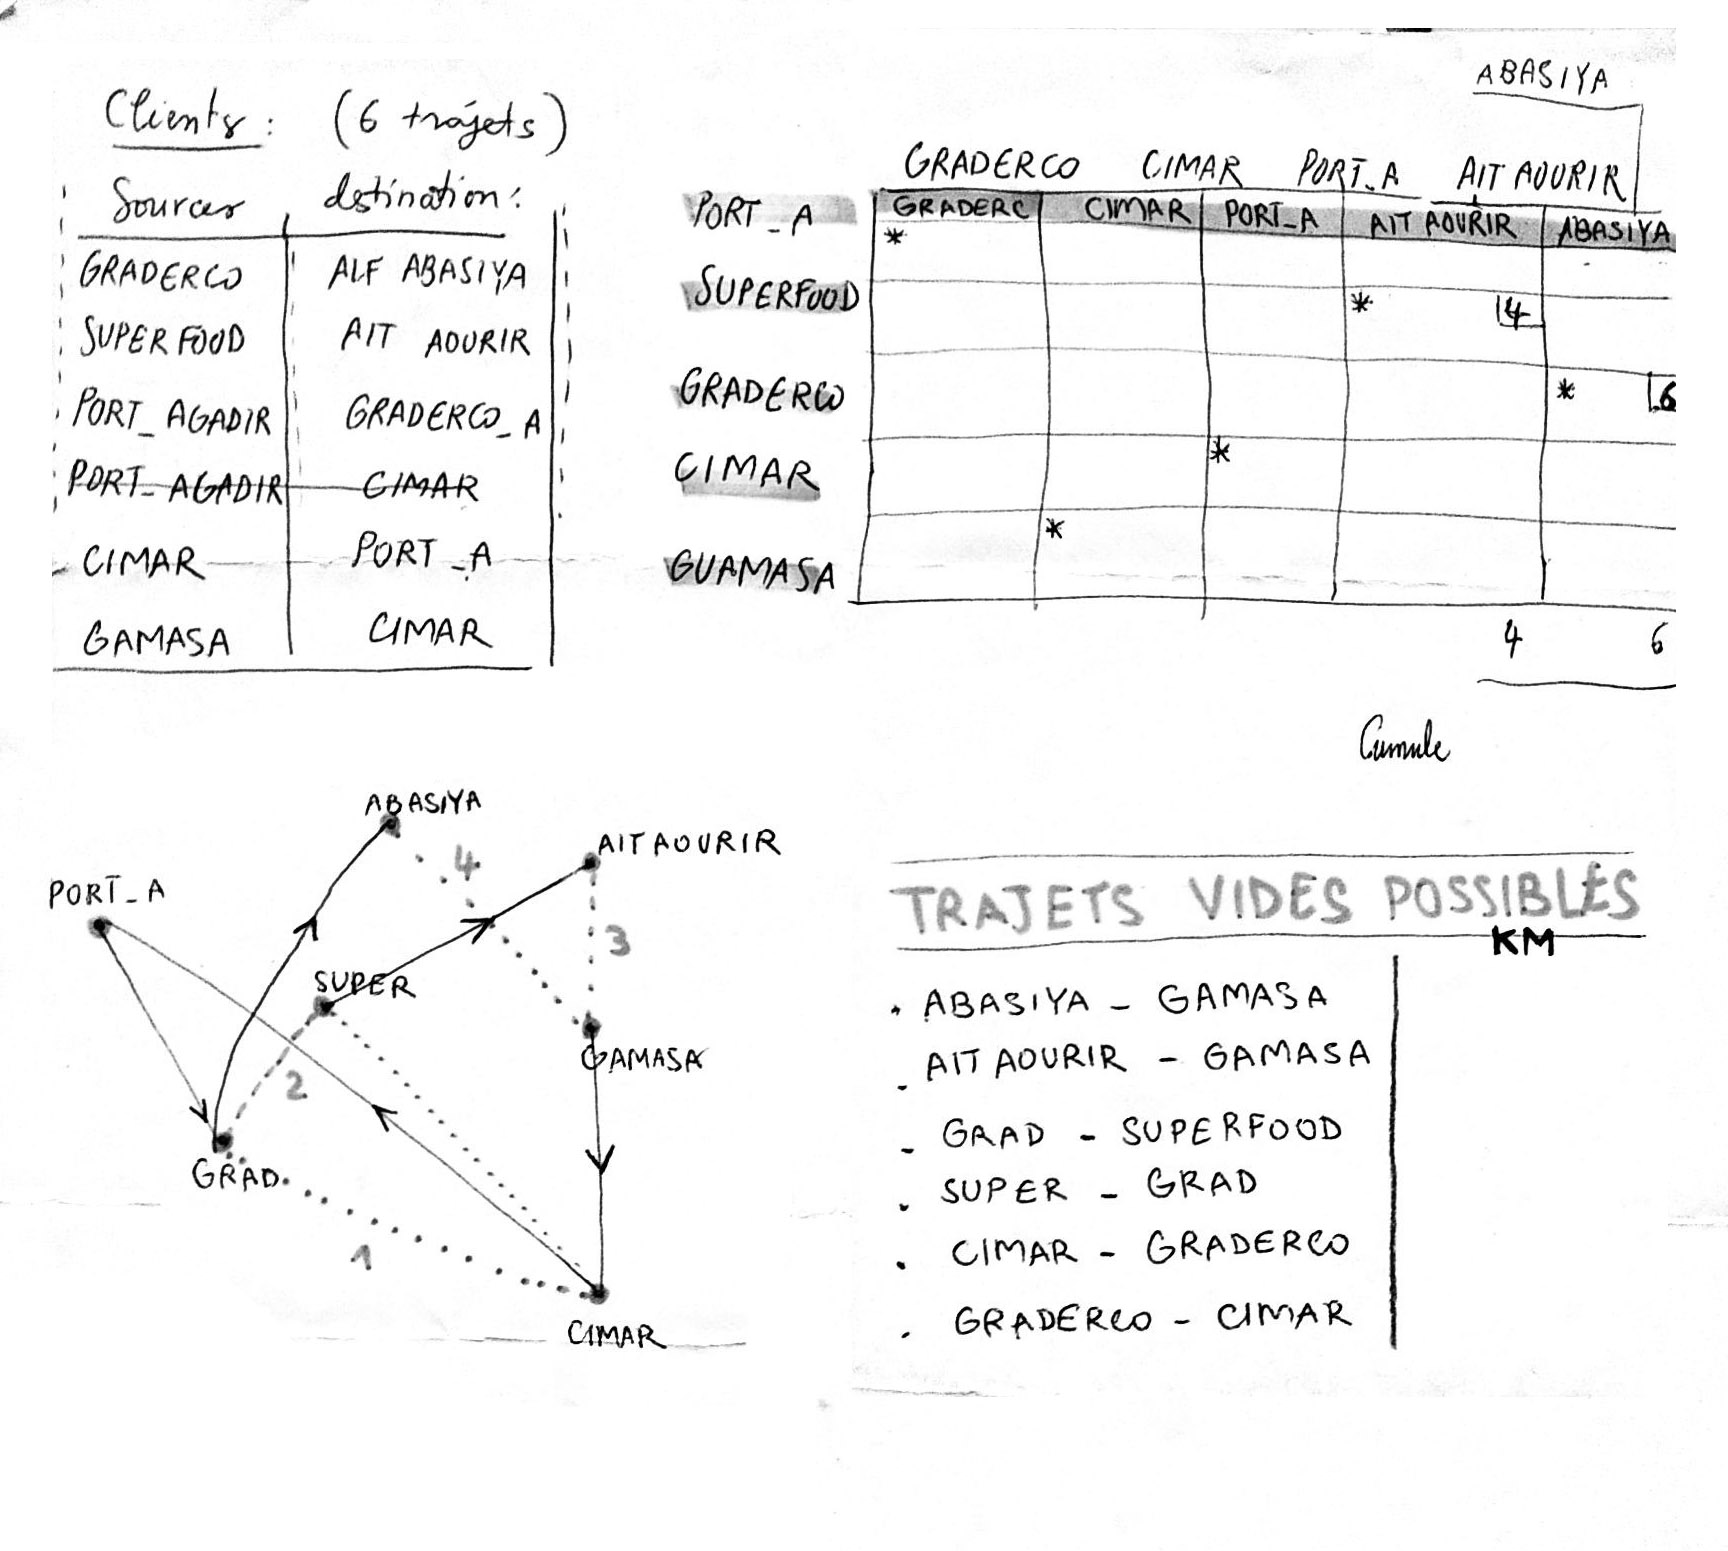 Clients : (6 trájets)
Sources destination :
GRADERCO ALF ABASIYA
SUPERFOOD AIT AOURIR
PORT_AGADIR GRADERCO_A
PORT_AGADIR CIMAR
CIMAR PORT_A
GAMASA CIMAR
ABASIYA
GRADERCO CIMAR PORT_A AIT AOURIR
PORT_A GRADERC CIMAR PORT_A AIT AOURIR ABASIYA
*
SUPERFOOD * 4
GRADERCO * 6
CIMAR *
*
GUAMASA
4 6
Cumule
ABASIYA
AIT AOURIR
4
PORT_A
3
SUPER
GAMASA
2
GRAD
1
CIMAR
TRAJETS VIDES POSSIBLES
KM
. ABASIYA - GAMASA
. AIT AOURIR - GAMASA
- GRAD - SUPERFOOD
. SUPER - GRAD
. CIMAR - GRADERCO
. GRADERCO - CIMAR